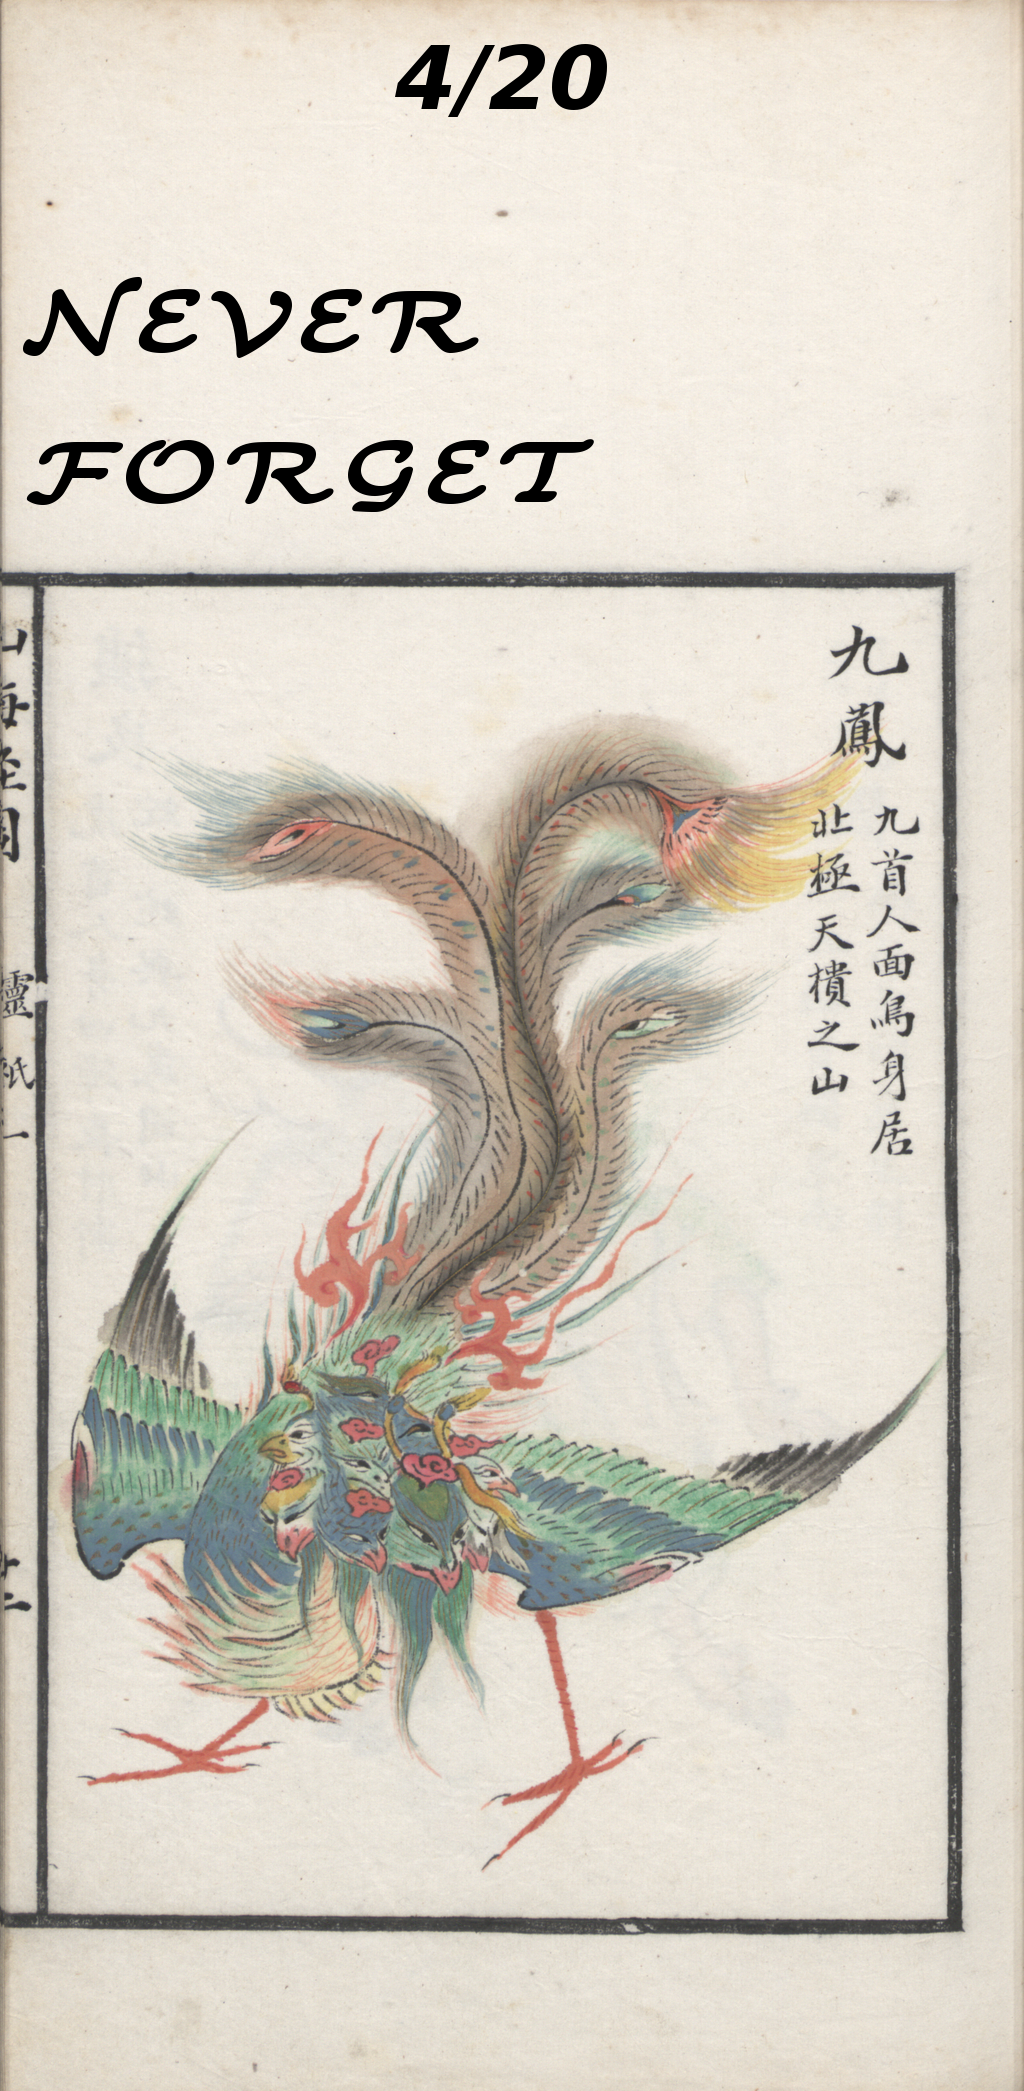 4/20
NEVER
FORGET
九鳳
九首人面鳥身居
北極天樻之山
山海經圖
靈祇一